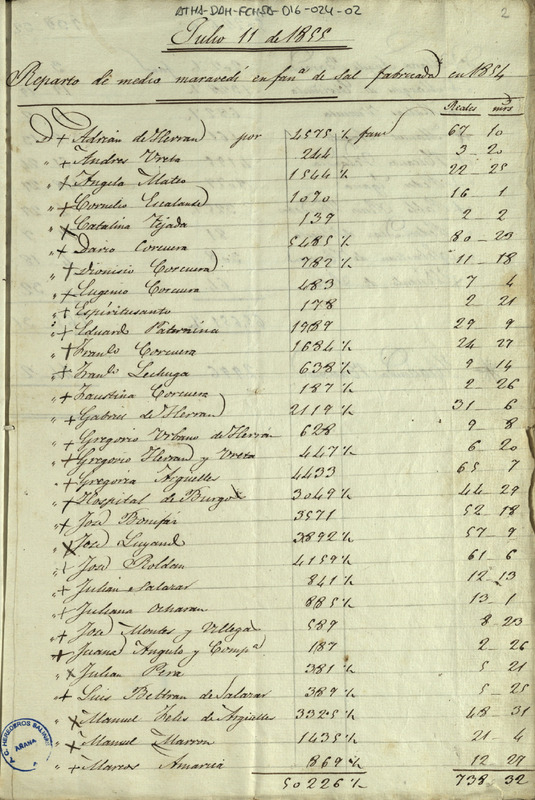 ATHA-DAH-FCH-SG-016-024-02
2
Julio 11 de 1855
Reparto de medio maravedi en fan.ª de Sal fabricada en 1854
Reales mrs
D. + Adrian de Herran por 4575 ½ fan.s 67 10
" + Andres Ureta 244 3 20
" + Angela Mateo 1544 ½ 22 25
" + Cornelio Escalante 1090 16 1
" + Catalina Tejada 139 2 - 2
" + Dario Corcuera 5485 ½ 80 - 23
" + Dionisio Corcuera 782 ½ 11 - 18
" + Eugenio Corcuera 483 7 4
" + Espiritusanto 178 2 21
" + Eduard Paternina 1989 29 9
" + Fran.co Corcuera 1684 ½ 24 - 27
" + Fran.co Lechuga 638 ½ 9 - 14
" + Faustina Corcuera 187 ½ 2 - 26
" + Gabriel de Herran 2119 ½ 31 6
" + Gregorio Urbano de Herran 628 9 8
" + Gregorio Herran y Ureta 447 ½ 6 20
" + Gregoria Arguelles 4433 65 7
" + Hospital de Burgos 3049 ½ 44 - 29
" + José Bonifaz 3571 52 18
" + José Luyand 3892 ½ 57 - 9
" + José Roldan 4159 ½ 61 6
" + Julian Salazar 841 ½ 12 13
" + Juliana Ocharan 885 ½ 13 1
" + José Montes y Villega 589 8 23
" + Juana Angulo y Comp.ª 187 2 - 26
" x Julian Pera 381 ½ 5 21
" + Luis Beltran de Salazar 389 ½ 5 - 25
" + Manuel Felis de Arguelles 3325 ½ 48 - 31
" + Manuel Marron 1435 ½ 21 - 4
" + Marcos Amarica 869 ½ 12 27
50226 ½ 738 32
A. C. HEREDEROS SALINAS
AÑANA